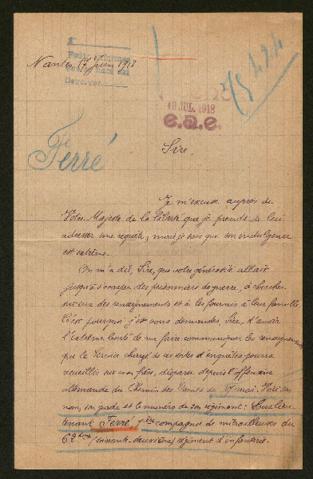 Nantes 17 juin 1918
10 JUL. 1918
e.a.e.
Ferré
Sire,
Je m'excuse auprès de
Votre Majesté de la liberté que je prends de lui
adresser une requête, mais je sais que son indulgence
est
On m'a dit, Sire, que votre générosité allait
jusqu'à s'occuper des prisonniers de guerre, à chercher
des renseignements et à les fournir à leur famille
C'est pourquoi j'ose vous demander, Sire, d'avoir
l'extrême bonté de me faire communiquer les renseignements
que le Service chargé de ces sortes d'enquêtes pourra
recueillir sur mon fils, disparu depuis l'offensive
allemande du Chemin des Dames du 27 mai. Voici son
nom, son grade et le numéro de son régiment: Sous lieu-
tenant Ferré, compagnie de mitrailleuses du
62ème soixante-deuxième régiment d'infanterie.